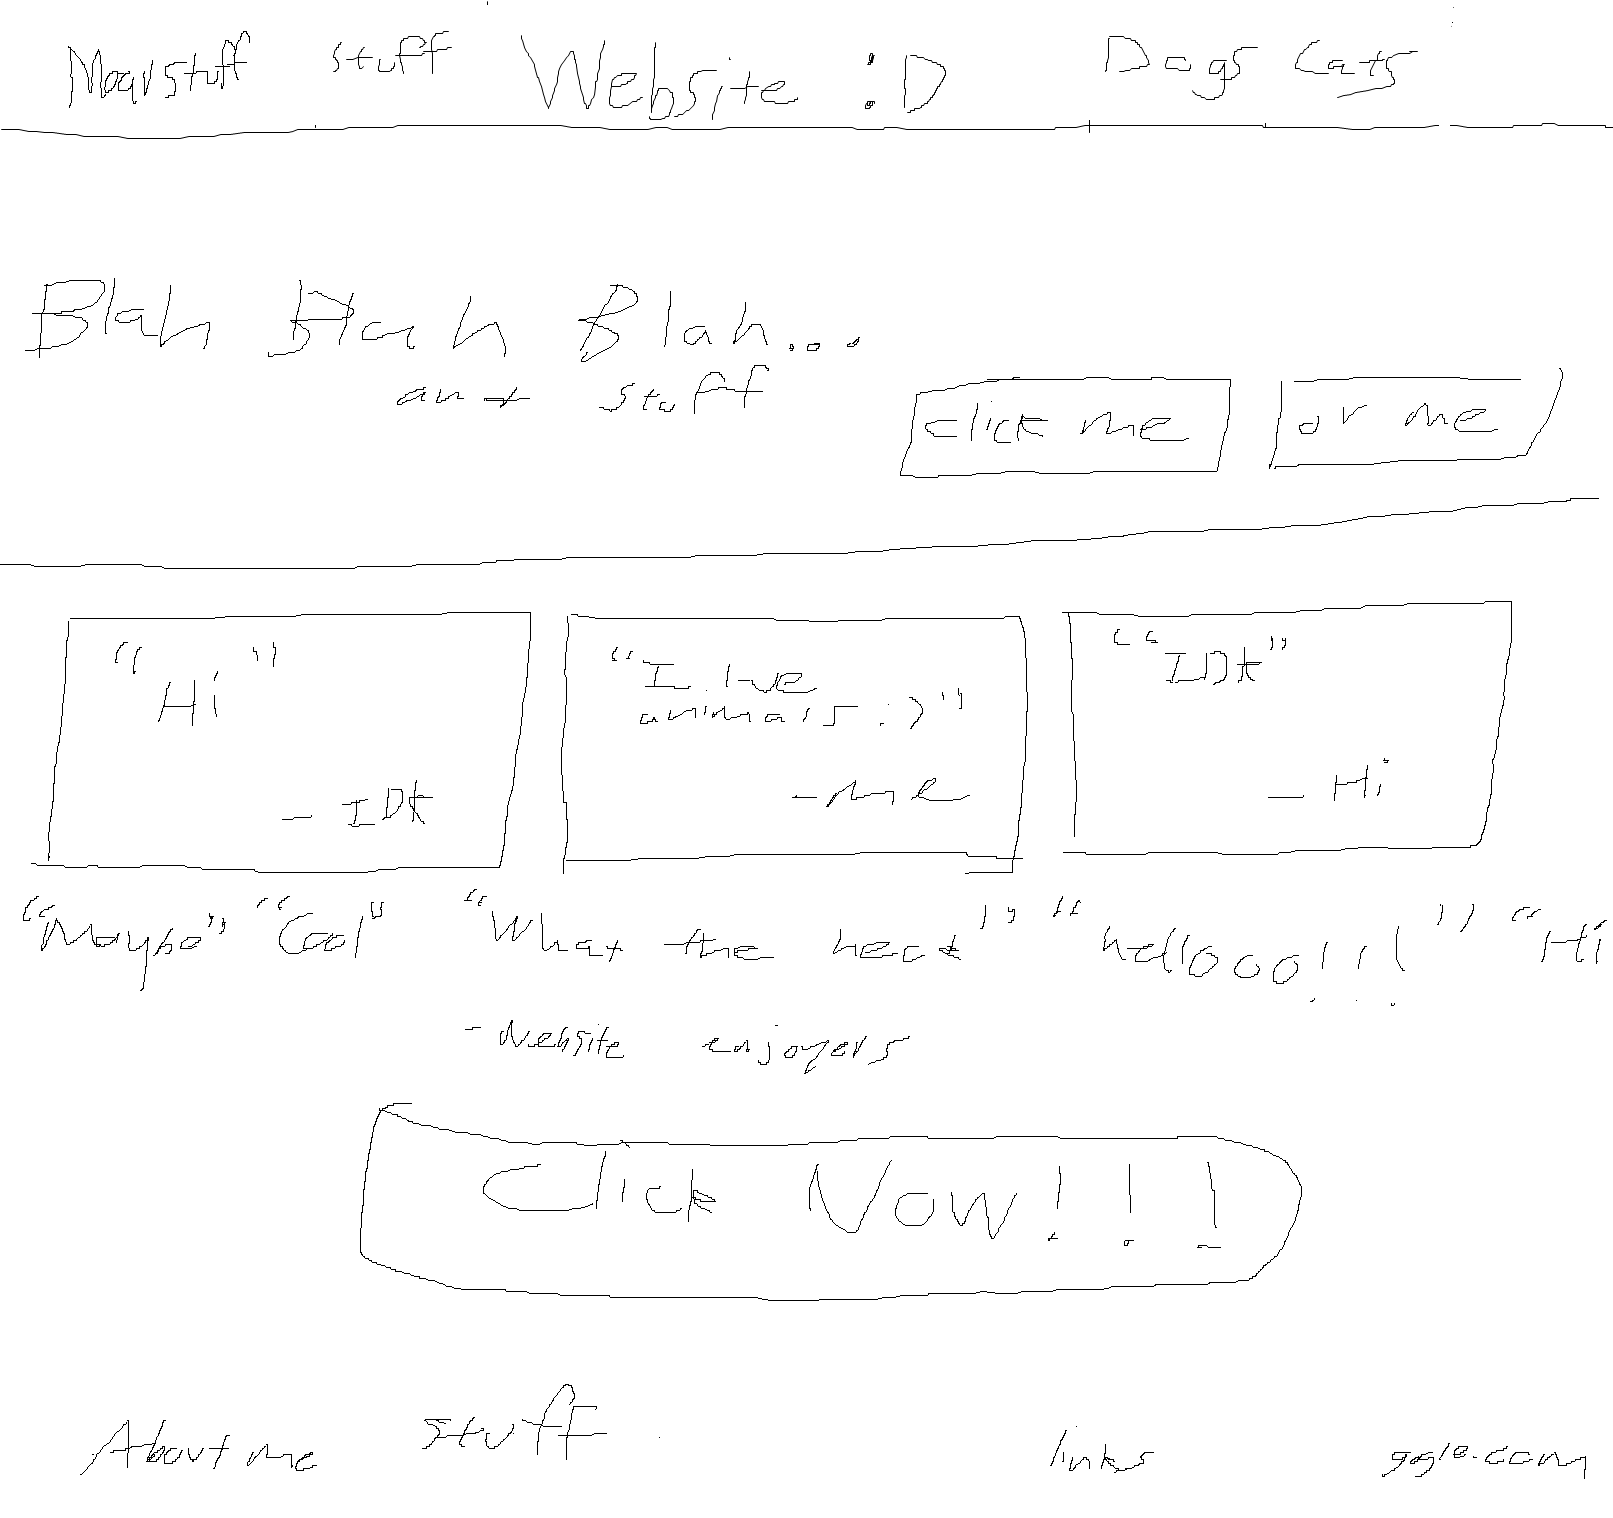 Moarstuff stuff Website :D Dogs Cats
Blah Blah Blah...
and stuff
click me
or me
"Hi"
- IDK
"I love
animals :)"
- me
"IDK"
- Hi
"Maybe" "Cool" "What the heck" "hellooo!!!" "Hi
- Website enjoyers
Click Now!!!
About me stuff links gogle.com